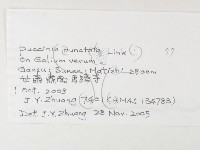 Puccinia punctata Link
On Galium verum
Gansu: Sunan: Mati Si 2580m
甘肃肃南马蹄寺
1 Oct. 2003
J.Y. Zhuang (HMAS 134783)
Det. J.Y. Zhuang 28 Nov. 2005